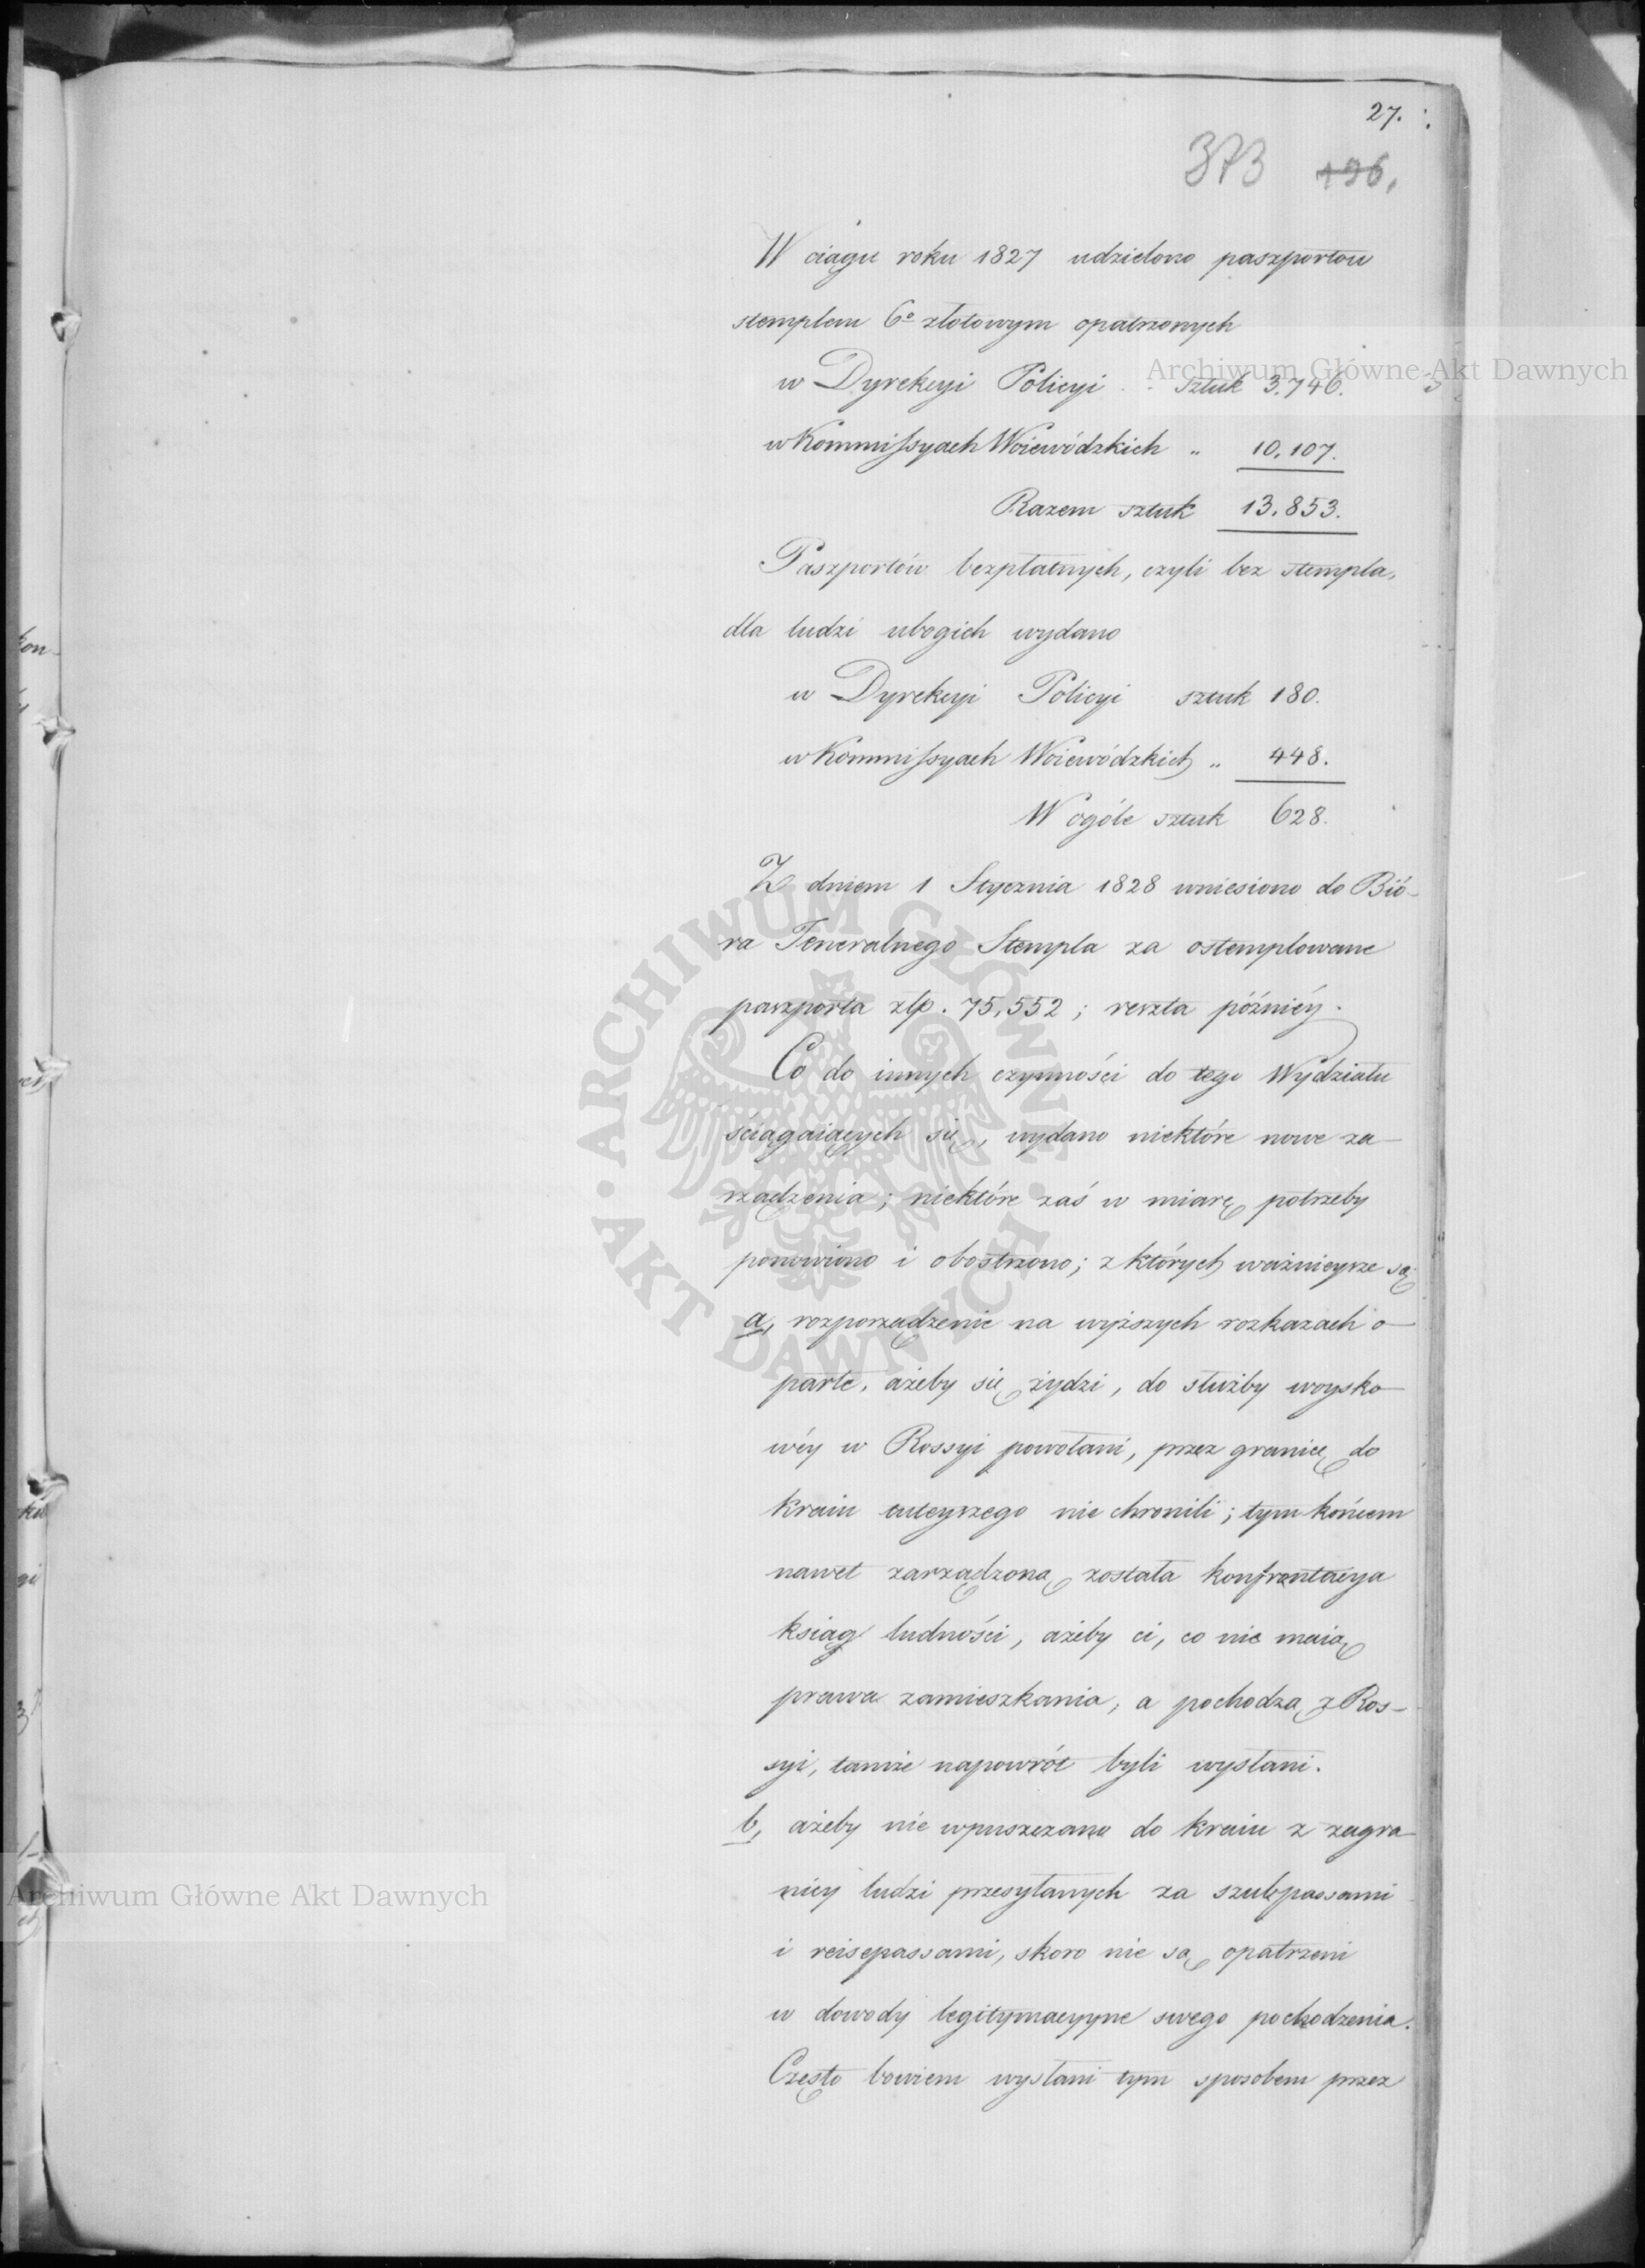 27.
373 196,
W ciągu roku 1827 udzielono paszportow
stemplem 6o złotowym opatrzonych
w Dyrekcyi Policyi sztuk 3.746.
w Kommissyach Woiewódzkich „ 10,107.
Razem sztuk 13.853.
Paszportów bezpłatnych, czyli bez stempla,
dla ludzi ubogich wydano
w Dyrekcyi Policyi sztuk 180.
w Kommissyach Woiewódzkich „ 448.
W ogóle sztuk 628.
Z dniem 1 Stycznia 1828 wniesiono do Bió-
ra Jeneralnego Stempla za ostemplowane
paszporta złp. 75,552; reszta późniéy.
Co do innych czynności do tego Wydziału
ściągaiących się, wydano niektóre nowe za-
rządzenia; niektóre zaś w miarę potrzeby
ponowiono i obostrzono; z których ważnieysze są
a, rozporządzenie na wyższych rozkazach o-
parte, ażeby się żydzi, do służby woysko-
wéy w Rossyi powołani, przez granicę do
kraiu tuteyszego nie chronili; tym końcem
nawet zarządzoną została konfrontacya
ksiąg ludności, ażeby ci, co nie maią
prawa zamieszkania, a pochodzą z Ros-
syi, tamże napowrót byli wysłani.
b, ażeby nie wpuszczano do kraiu z zagra-
nicy ludzi przesyłanych za szubpassami
i reisepassami, skoro nie są opatrzeni
w dowody legitymacyyne swego pochodzenia.
Często bowiem wysłani tym sposobem przez
Archiwum Główne Akt Dawnych
ARCHIWUM GŁÓWNE · AKT DAWNYCH ·
Archiwum Główne Akt Dawnych